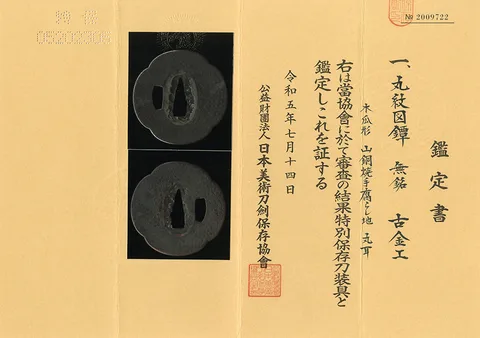 鑑定書
一、丸紋図鐔 無銘 古金工
木瓜形 山銅焼手腐らし地 丸耳
右は當協會に於て審査の結果特別保存刀装具と
鑑定しこれを証する
令和五年七月十四日
公益財團法人日本美術刀劍保存協會
№ 2009722
特保